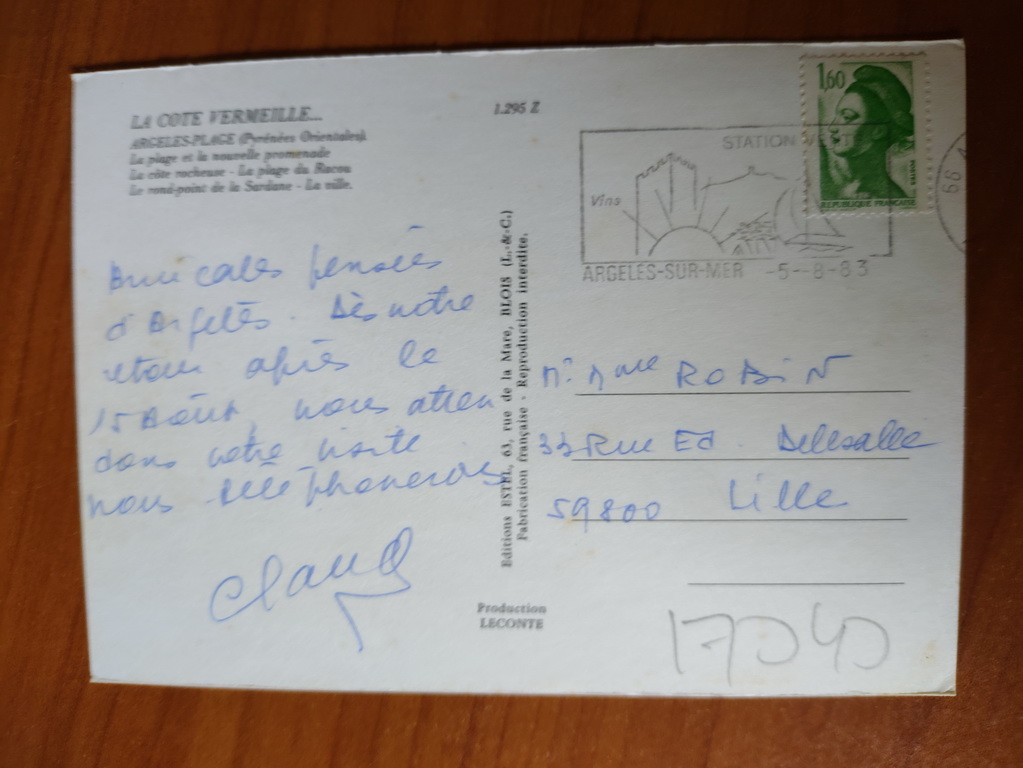 LA COTE VERMEILLE...
ARGELES-PLAGE (Pyrénées Orientales).
La plage et la nouvelle promenade
La côte rocheuse - La plage du Racou
Le rond-point de la Sardane - La ville.
1.295 Z
Amicales pensées
d'Argelès. Dès notre
retour après le
15 Août, nous atten
dons votre visite
nous téléphonerons
Claud
Editions ESTEL, 63, rue de la Mare, BLOIS (L.-&-C.)
Fabrication française - Reproduction interdite.
Production
LECONTE
STATION
Vins
ARGELES-SUR-MER -5-8-83
1,60
POSTES
REPUBLIQUE FRANÇAISE
66
Mr Mme ROBIN
33 Rue Ed. Delesalle
59800 Lille